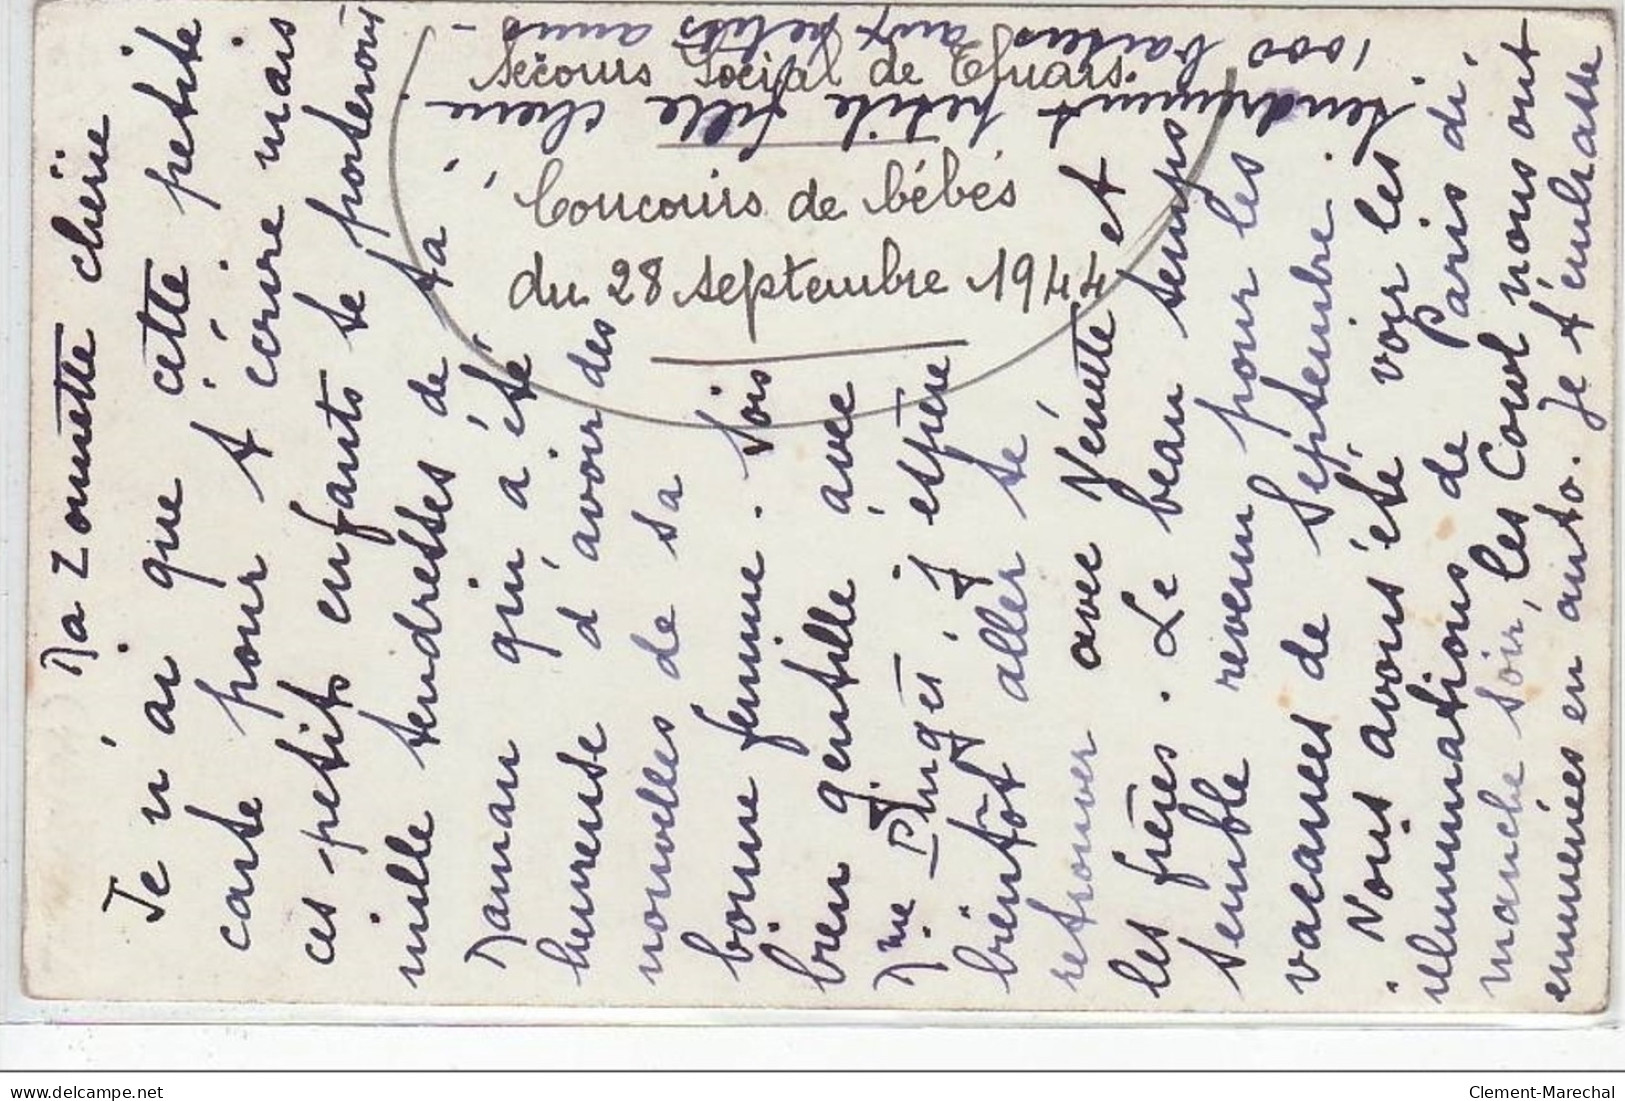 Secours Social de Thuars.
Concours de bébés
du 28 septembre 1944
Ma Zonnette chérie
Je n'ai que cette petite
carte pour t'écrire mais
ces petits enfants te porteront
mille tendresses de ta
Maman qui a été
heureuse d'avoir des
nouvelles de sa
bonne femme. Sois
bien gentille avec
Mme Pinget, j'espère
bientôt aller te
retrouver avec Nénette et
les frères. Le beau temps
semble revenu pour les
vacances de Septembre.
Nous avons été voir les
illuminations de Paris di,
manche soir, les Court nous ont
emmenées en auto. Je t'embrasse
tendrement petite fille chérie
1000 baisers aux petits amis -
www.delcampe.net
Clement-Marechal